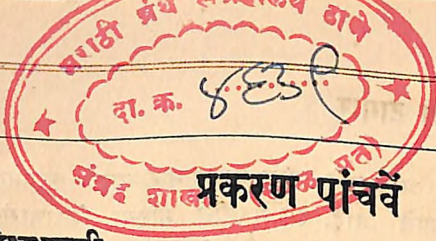 मराठी ग्रंथ संग्रहालय ठाणे
दा. क्र.
संग्रह शाखा
प्रकरण पांचवें